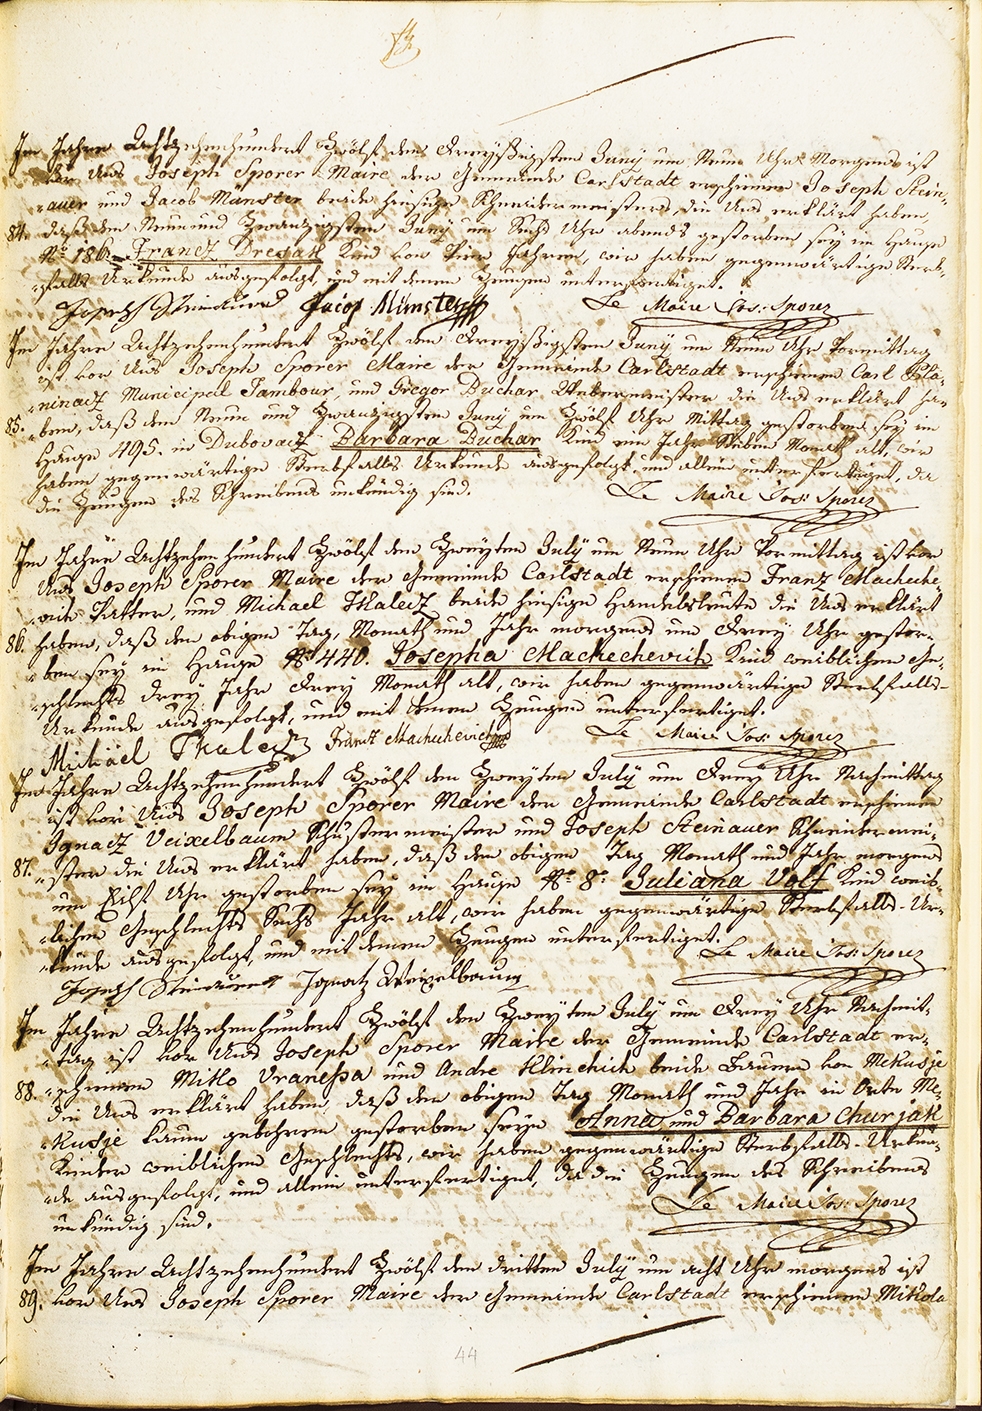 Im Jahre Achtzehenhundert Zwölf den Dreyßigsten Juny um Neun Uhr Morgends ist
vor Uns Joseph Sporer Maire der Gemeinde Carlstadt erschienen Joseph Stein-
-auer und Jacob Münster beide hiesige Schneidermeisters, die Uns erklärt haben,
84. daß den Neun und Zwanzigsten Juny um Sechs Uhr abends gestorben sey im Hause
No 186. Francz Dresak Kind von Vier Jahren, wir haben gegenwärtige Sterb-
-falls Urkunde ausgefolgt, und mit denen Zeugen unterfertiget.
Joseph Steinauer Jacob Münster Le Maire Jos: Sporer
Im Jahre Achtzehenhundert Zwölf den Dreyßigsten Juny um Neun Uhr Vormittag
ist vor Uns Joseph Sporer Maire der Gemeinde Carlstadt erschienen Carl
-ninacz Municipal Tambour, und Gregor Duchar Webermeister die Uns erklärt ha-
85. -ben, daß den Neun und Zwanzigsten Juny um Zwölf Uhr Mittag gestorben sey im
Hause 195. in Dubovacz Barbara Duchar Kind ein Jahr Sieben Monath alt, wir
haben gegenwärtige Sterbfalls Urkunde ausgefolgt, und allein unterfertiget, da
die Zeugen des Schreibens unkündig sind. Le Maire Jos: Sporer
Im Jahre Achtzehenhundert Zwölf den Zweyten July um Neun Uhr Vormittag ist vor
Uns Joseph Sporer Maire der Gemeinde Carlstadt erschienen Franz Macheche-
-vich Vatter, und Michael Thalecz beide hiesige Handelsleute die Uns erklärt
86. haben, daß den obigen Tag, Monath und Jahr morgends um Drey Uhr gestor-
-ben sey im Hause No 440. Josepha Machechevich Kind weiblichen Ge-
-schlechts Drey Jahr Drey Monath alt, wir haben gegenwärtige Sterbfalls-
Urkunde ausgefolgt, und mit denen Zeugen unterfertiget.
Michäel Thalecz Frantz Machechevich Le Maire Jos: Sporer
Im Jahre Achtzehenhundert Zwölf den Zweyten July um Drey Uhr Nachmittag
ist vor Uns Joseph Sporer Maire der Gemeinde Carlstadt erschienen
Ignacz Veixelbaum Schustermeister und Joseph Steinauer Schneidermei-
87. -ster die Uns erklärt haben, daß den obigen Tag Monath und Jahr morgends
um Uhr gestorben sey im Hause No 8. Juliana Volf Kind weib-
-lichen Geschlechts Sechs Jahr alt, wir haben gegenwärtige Sterbfalls-Ur-
-kunde ausgefolgt, und mit denen Zeugen unterfertiget. Le Maire Jos: Sporer
Joseph Steinauer Ignatz Weixelbaum
Im Jahre Achtzehenhundert Zwölf den Zweyten July um Drey Uhr Nachmit-
-tag ist vor Uns Joseph Sporer Maire der Gemeinde Carlstadt er-
88. -schienen Mitko Vranessa und Andre Klinchich beide Bauern von Mekusje
die Uns erklärt haben, daß den obigen Tag Monath und Jahr in Orte Me-
-kusje kaum gebohren gestorben seyn Anna und Barbara Churjak
Kinder weiblichen Geschlechts, wir haben gegenwärtige Sterbfalls-Urkun-
-de ausgefolgt, und allein unterfertiget, da die Zeugen des Schreibens
unkündig sind. Le Maire Jos: Sporer
Im Jahre Achtzehenhundert Zwölf den dritten July um acht Uhr morgens ist
89. vor Uns Joseph Sporer Maire der Gemeinde Carlstadt erschienen Mikola
44